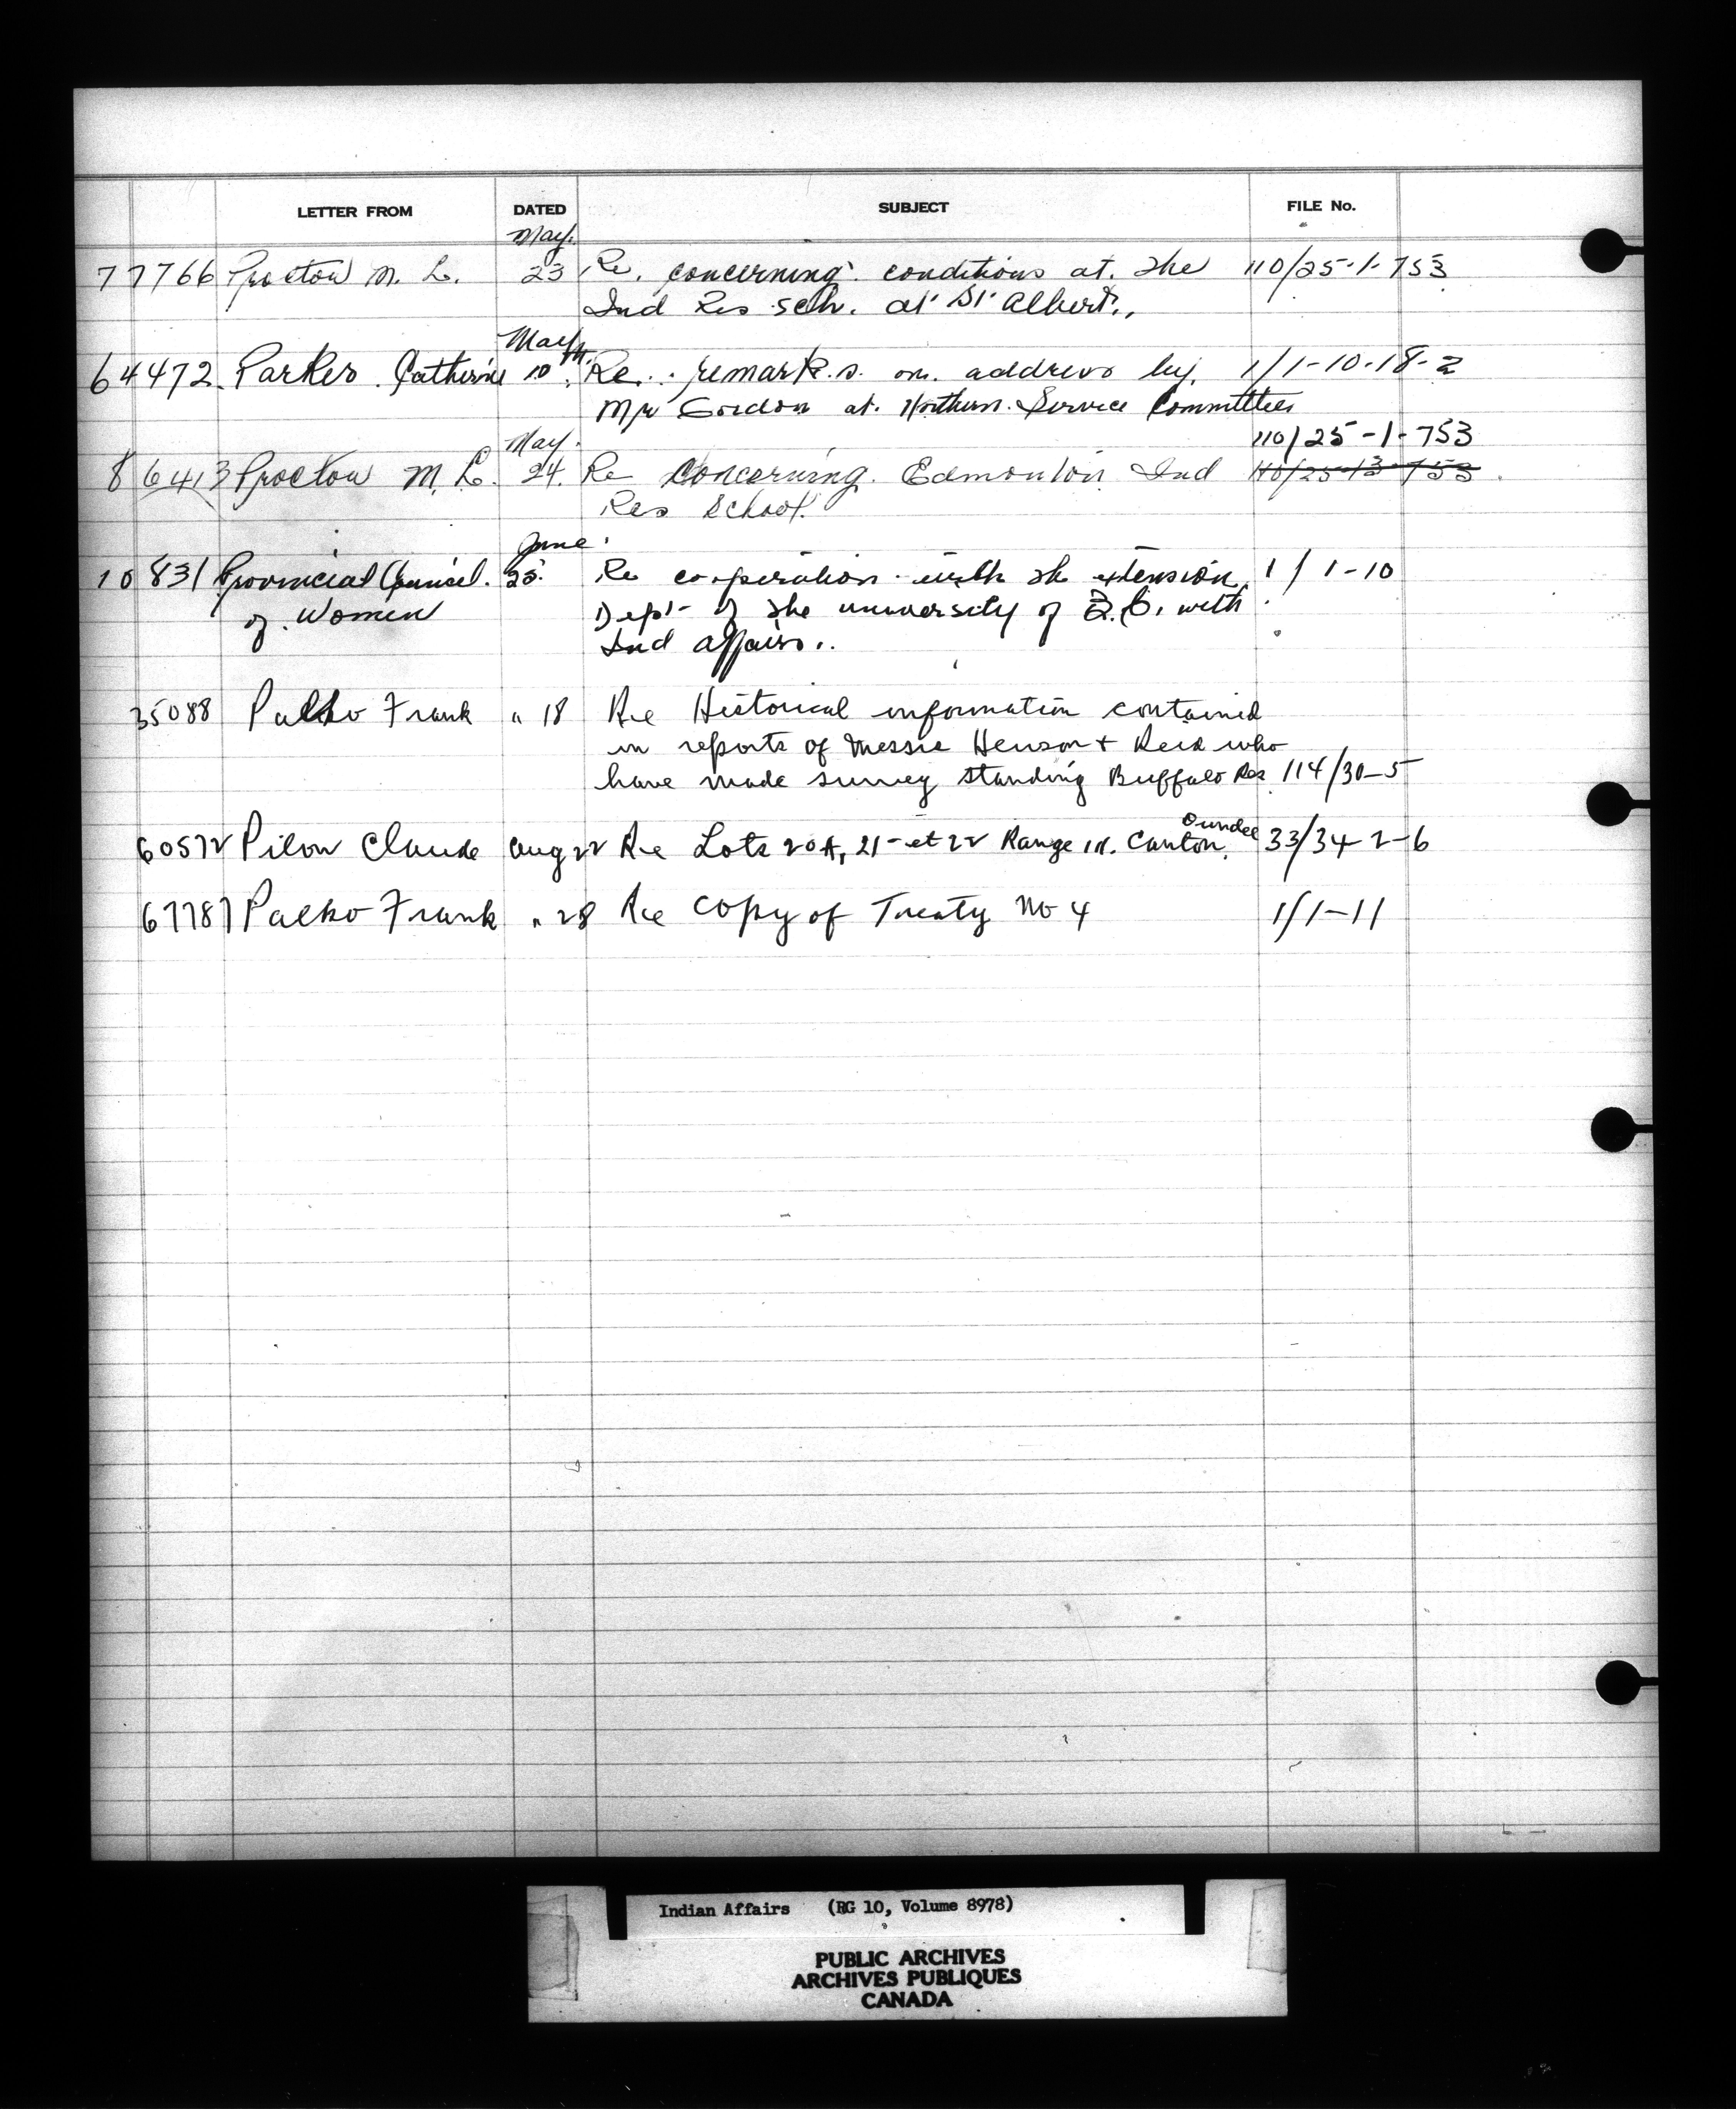 LETTER FROM DATED SUBJECT FILE No.
May.
77766 Proctow M. L. 23 Re. concerning conditions at. the 110/25-1-753
Ind Res sch. at St Albert.,
May
64472 Parker Catherine 10th. Re.. remark.s. on. address by. 1/1-10-18-2
Mr Gordon at. Northern. Service Committees
May. 110/25-1-753
86413 Proctow M. L. 24. Re Concerning. Edmonton Ind 110/25-13-753
Res School.
June
10831 Provincial Council. 25. Re co-operation with the extension 1/1-10
of. Women Dept- of the university of B.C. with
Ind affairs..
35088 Palko Frank " 18 Re Historical information contained
in reports of Messrs Henson + Reid who
have made survey standing Buffalo Res 114/30-5
Dundee
60572 Pilon Claude Aug 22 Re Lots 20A, 21-et 22 Range Canton. 33/34-2-6
67787 Palko Frank " 28 Re Copy of Treaty No 4 1/1-11
Indian Affairs (RG 10, Volume 8978)
PUBLIC ARCHIVES
ARCHIVES PUBLIQUES
CANADA